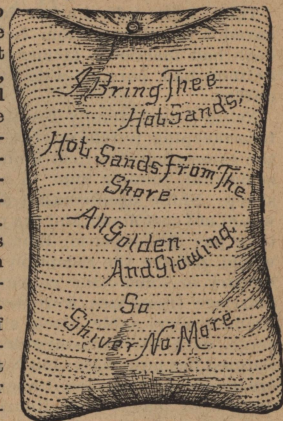 I Bring Thee
Hot Sands,
Hot Sands From The
Shore
All Golden
And Glowing
So
Shiver No More